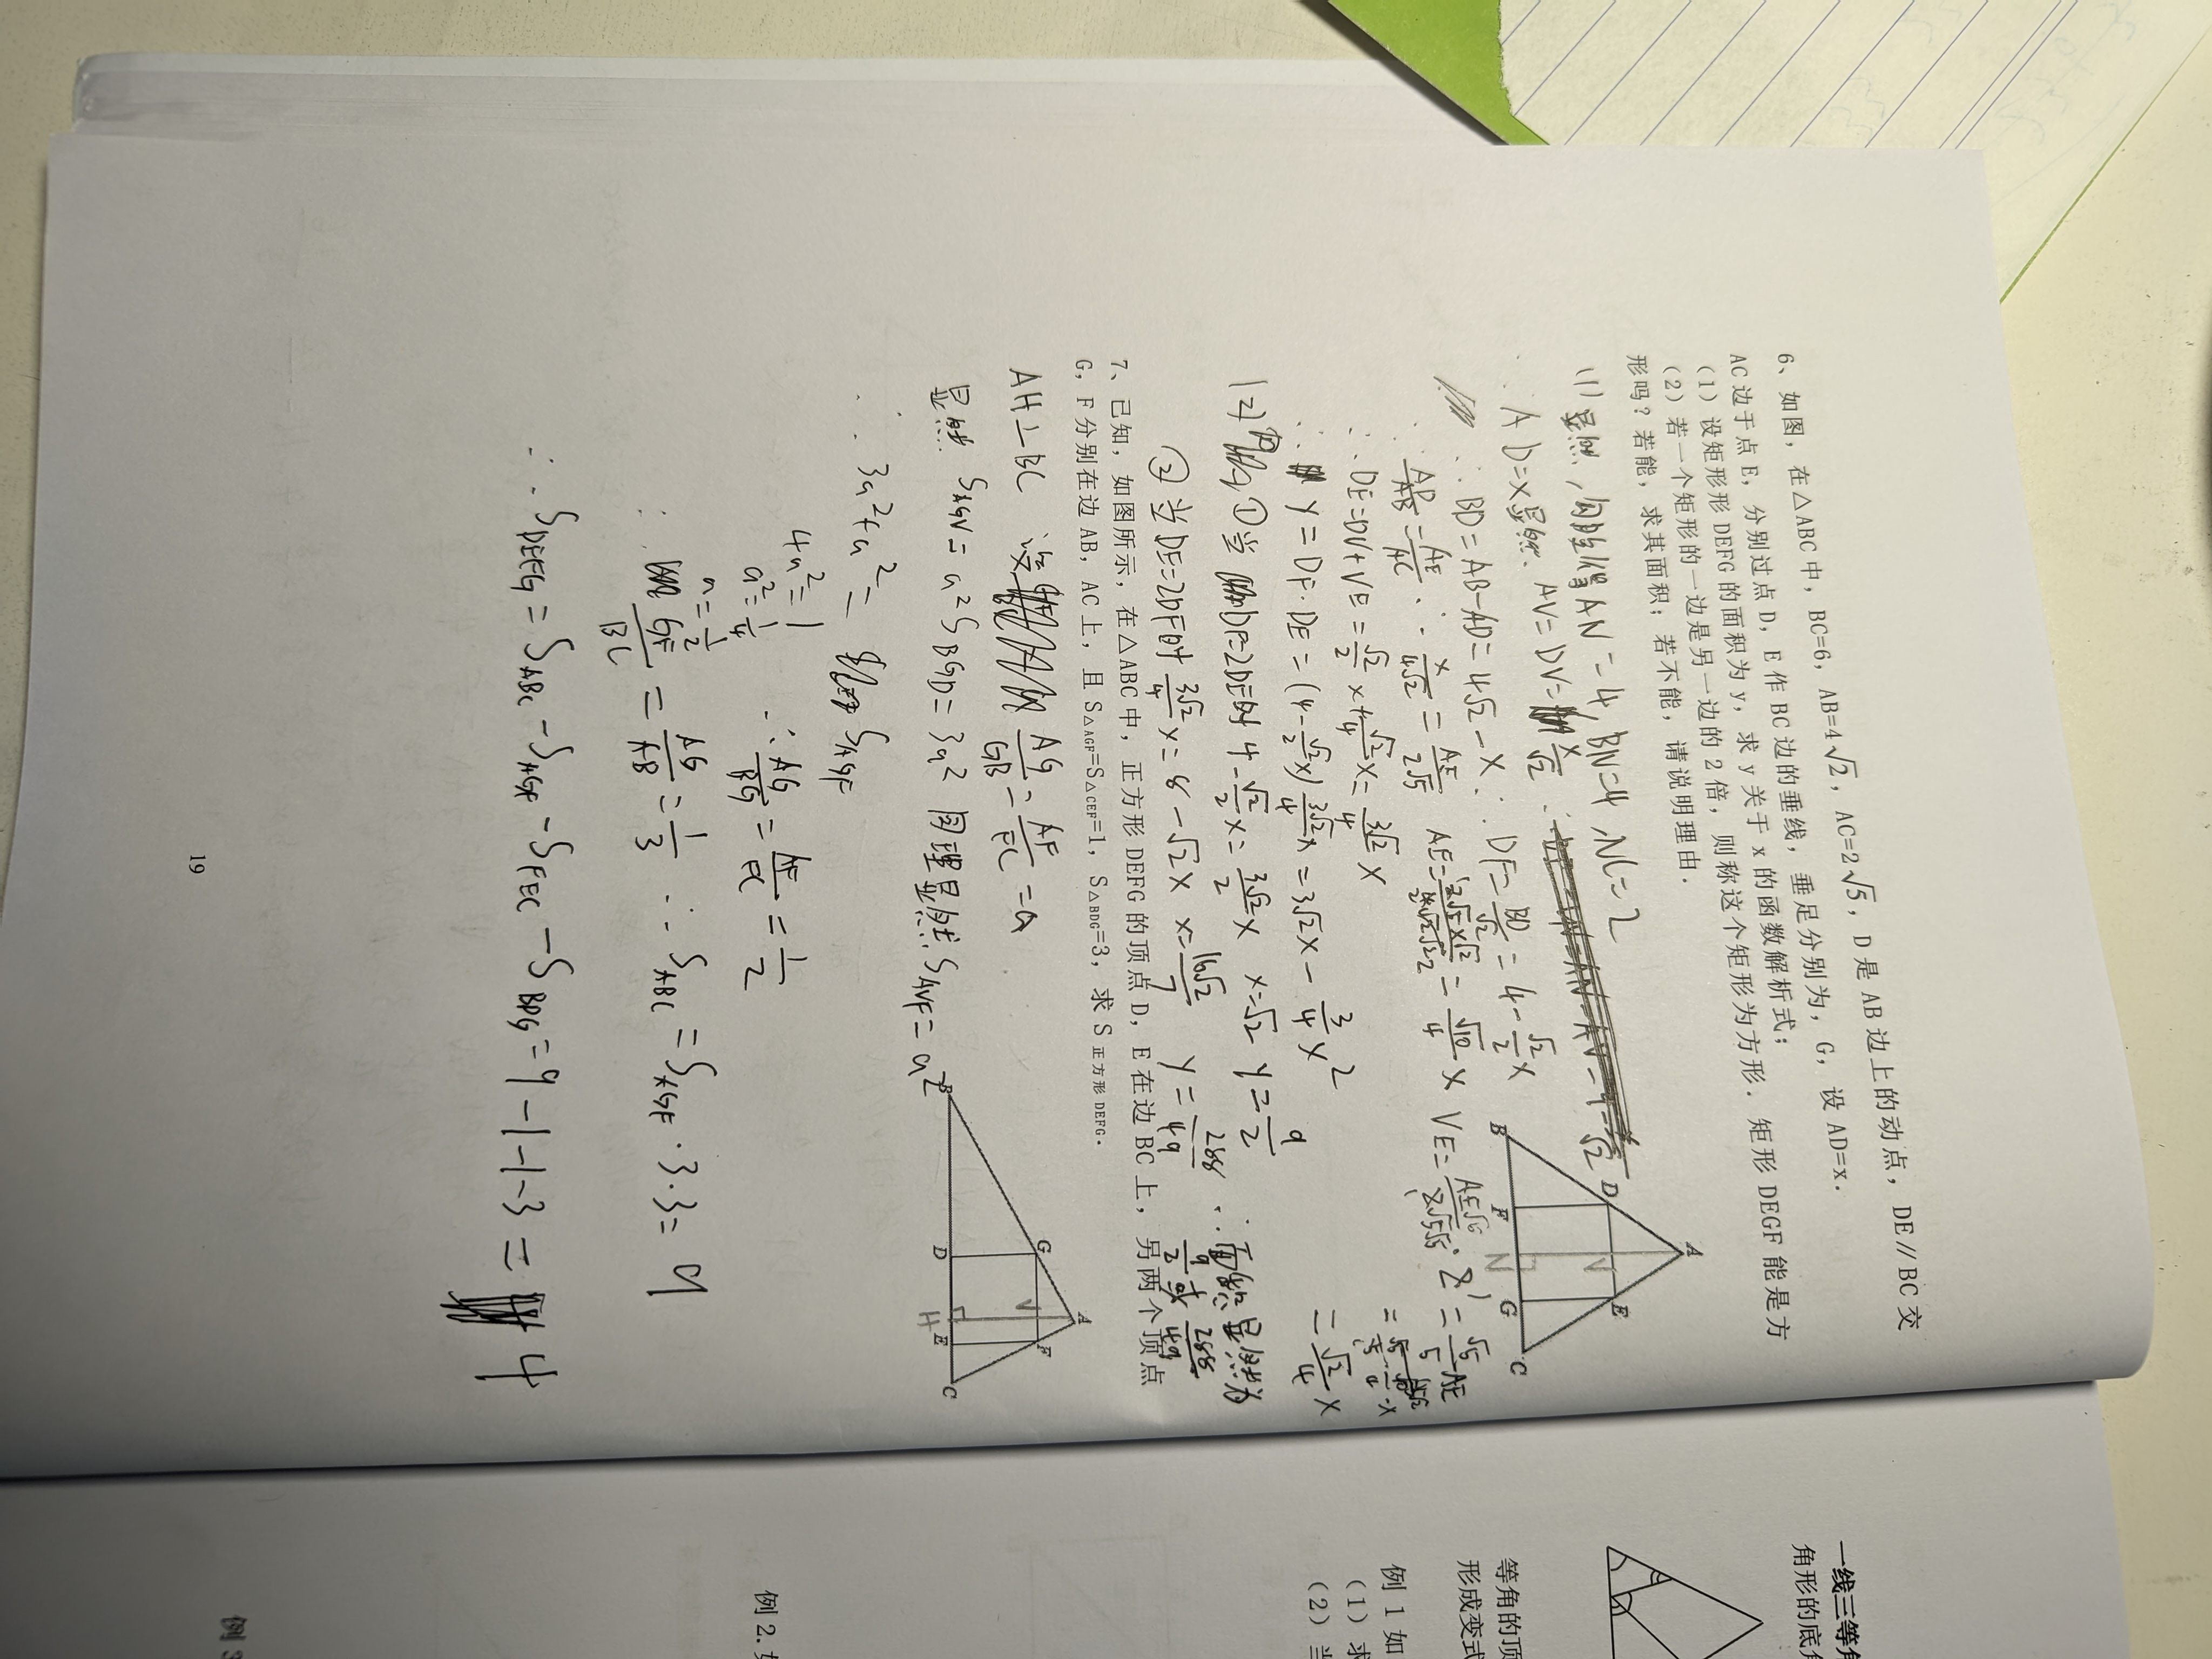 6、如图，在△ABC中，BC=6，AB=4√2，AC=2√5，D是AB边上的动点，DE//BC交
AC边于点E，分别过点D，E作BC边的垂线，垂足分别为，G，设AD=x.
（1）设矩形形DEFG的面积为y，求y关于x的函数解析式；
（2）若一个矩形的一边是另一边的2倍，则称这个矩形为方形．矩形DEGF能是方
形吗？若能，求其面积；若不能，请说明理由．
(1) 显然，勾股得AN=4, BN=4, NC=2
AD=x 显然. AV=DV=x/√2
∴BD=AB-AD=4√2-x ∴DF=BD/√2=4-√2/2 x
∴ AE/AC ∴ x/4√2=AE/2√5
∴DE=DV+VE=√2/2 x+√2/4 x=3√2/4 x
=√2/4 x
∴ y=DF·DE=(4-√2/2 x)3√2/4 x=3√2x-3/4 x²
(2) ①当DF=2DE时 4-√2/2 x=3√2/2 x x=√2 y=9/2
②当DE=2DF时 3√2/4 x=8-√2x x=16√2/7 y=288/49
9/2或288/49
A
B
C
D
E
F
G
N
V
7、已知，如图所示，在△ABC中，正方形DEFG的顶点D，E在边BC上，另两个顶点
G，F分别在边AB，AC上，且S△AGF=S△CEF=1，S△BDG=3，求S正方形DEFG．
AH⊥BC 设 AG/GB=AF/FC=a
显然 S AGV=a² S BGD=3a² 同理显然 S AVF=a²
∴ 3a²+a²= S AGF
4a²=1
a²=1/4
a=1/2
∴ AG/BG=AF/FC=1/2
∴ GF/BC=AG/AB=1/3 ∴ S ABC=S AGF·3·3=9
∴ S DEFG=S ABC-S AGF-S FEC-S BDG=9-1-1-3=4
A
B
C
D
E
F
G
H
V
19
一线三等角
角形的底角
等角的顶
形成变式
例1 如
（1）求
（2）当
例2.
例3